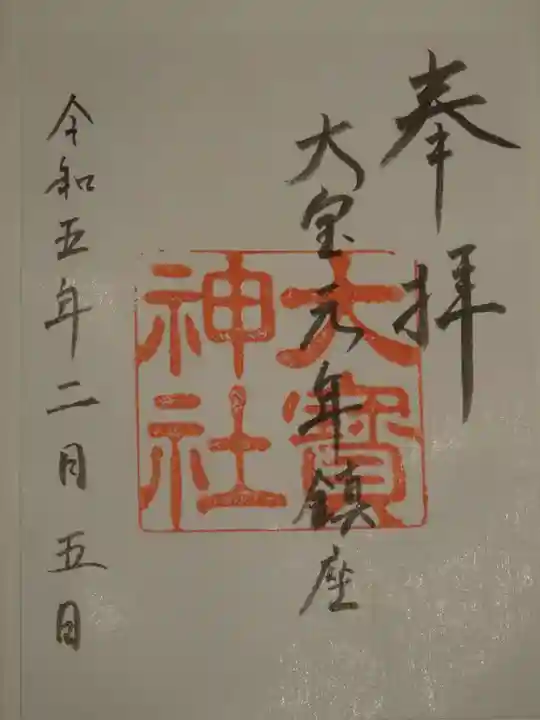 奉拝
大宝元年鎮座
大寳
神社
令和五年二月五日